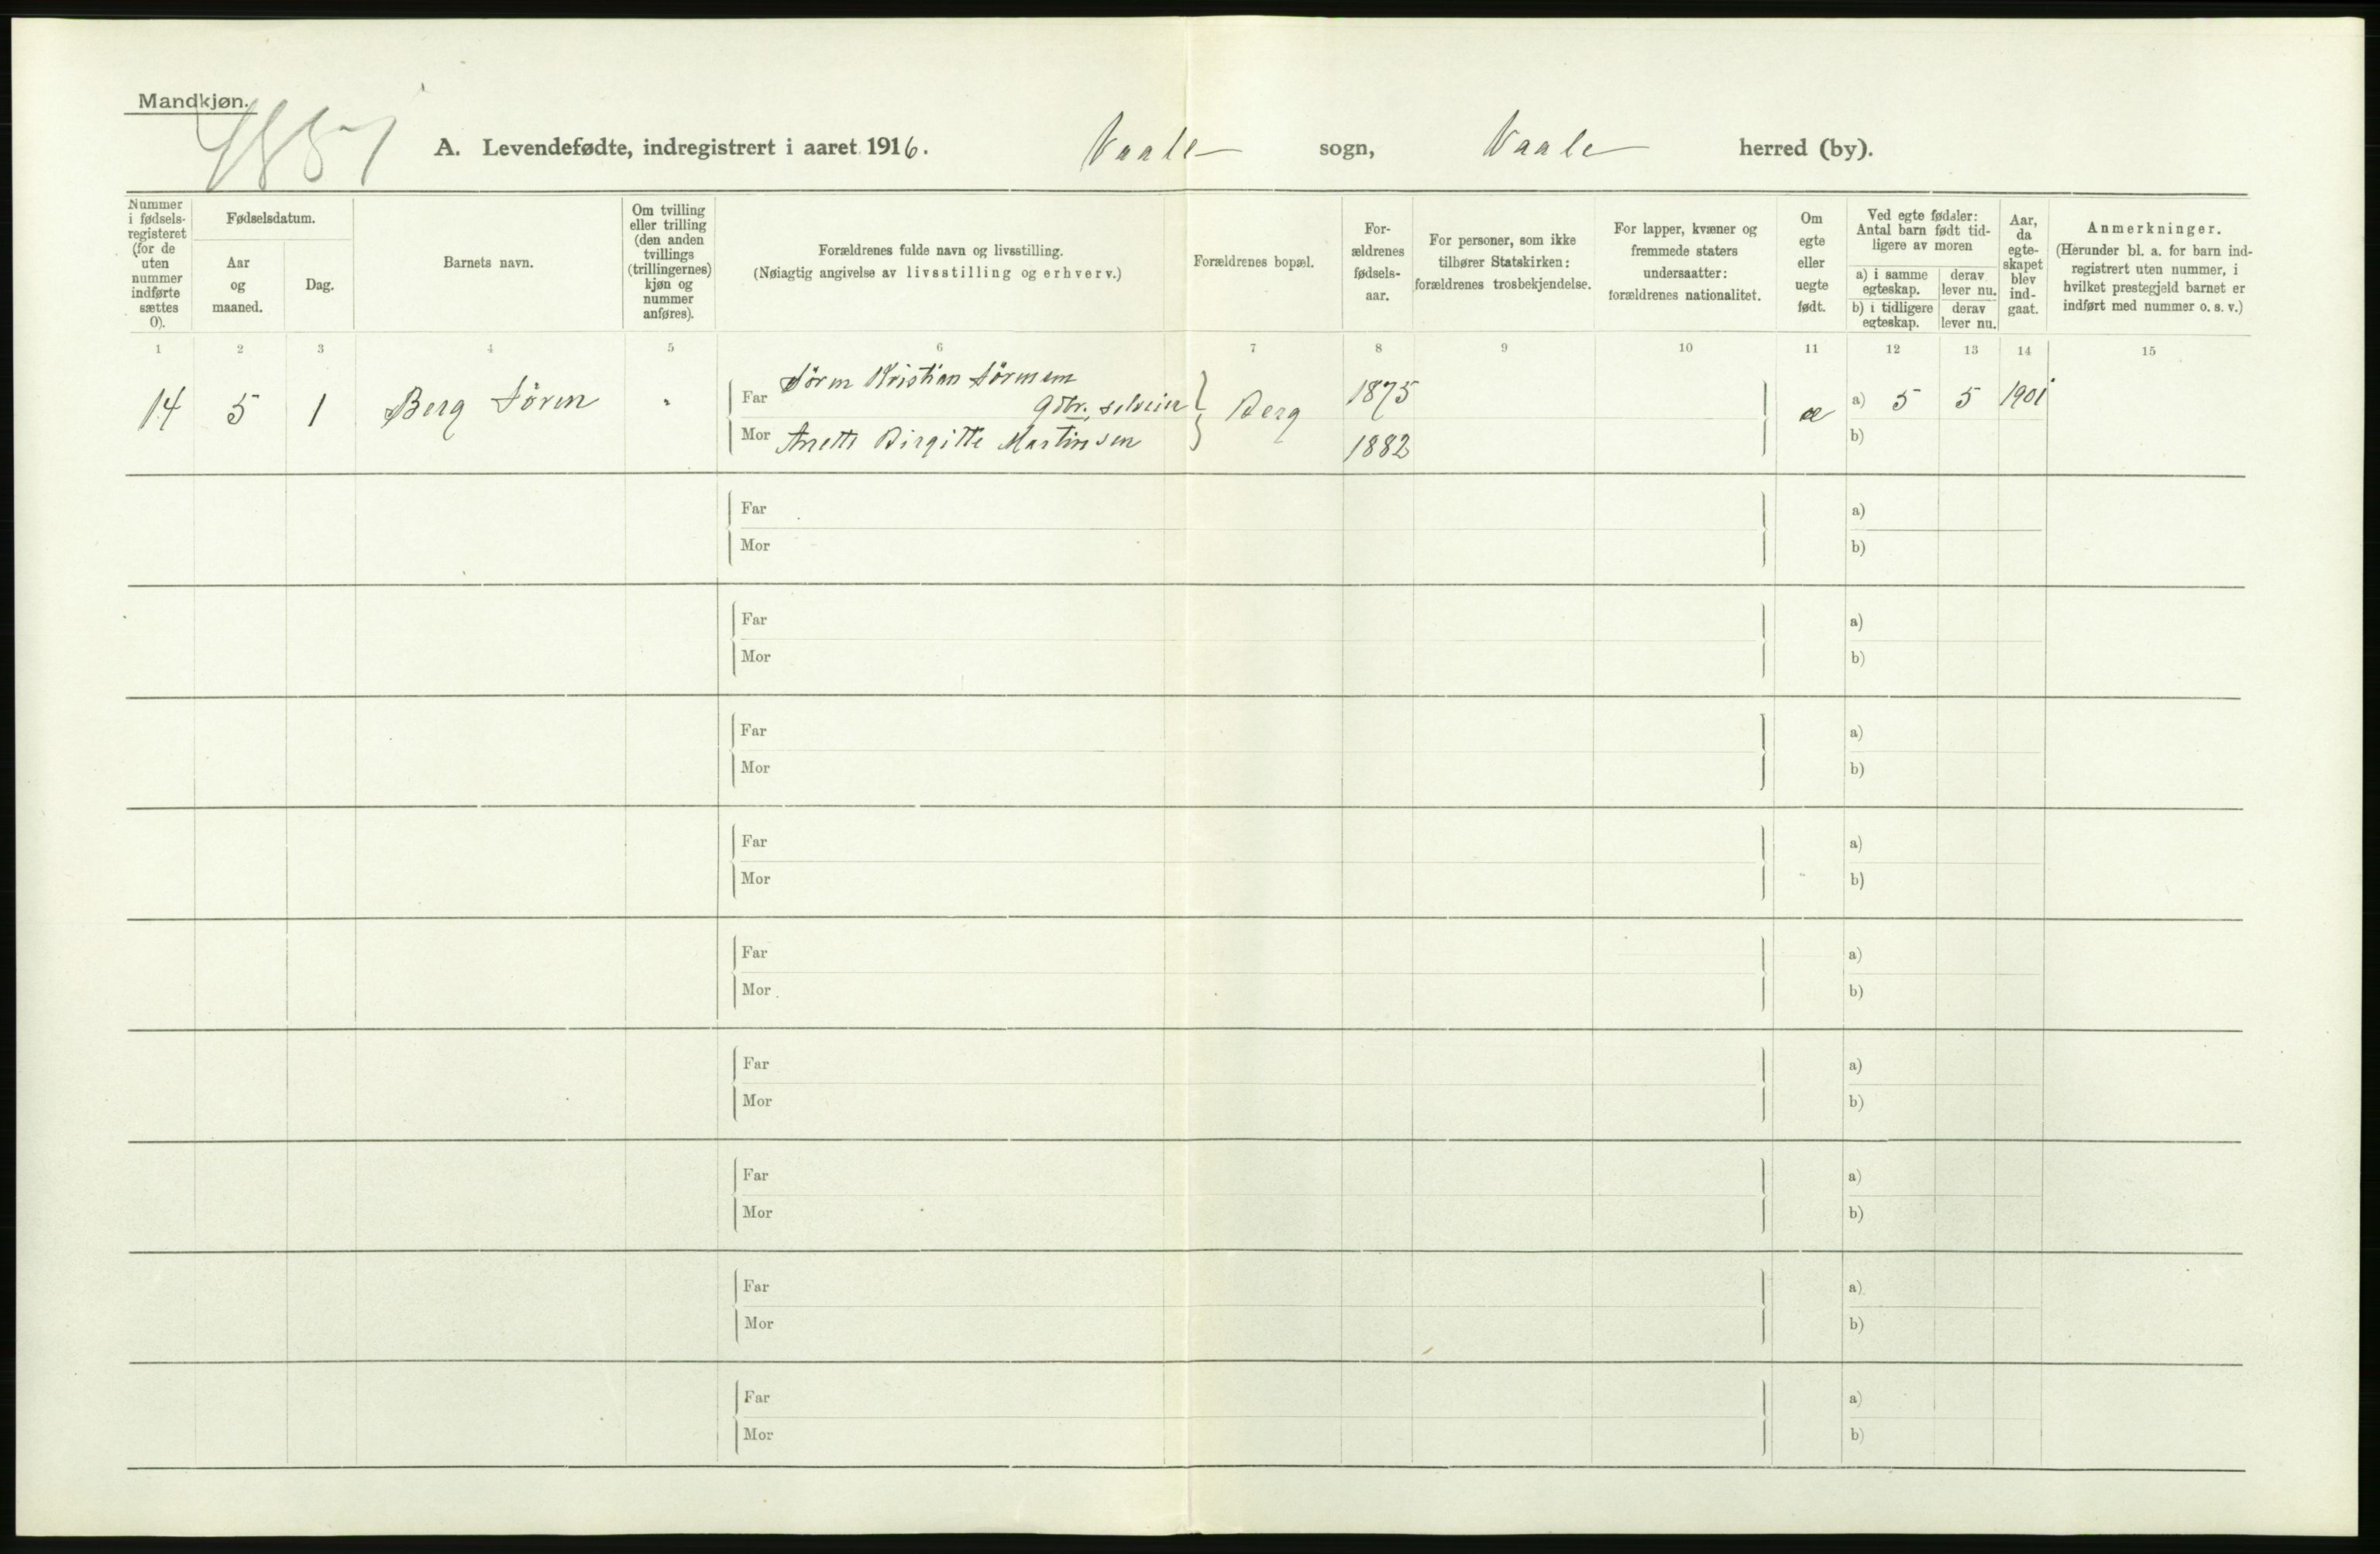 Mandkjøn.
A. Levendefødte, indregistrert i aaret 1916.
Vaale sogn, Vaale herred (by).
Nummer i fødsels-registeret (for de uten nummer indførte sættes 0).
Fødselsdatum.
Aar og maaned.
Dag.
Barnets navn.
Om tvilling eller trilling (den anden tvillings (trillingernes) kjøn og nummer anføres).
Forældrenes fulde navn og livsstilling.
(Nøiagtig angivelse av livsstilling og erhverv.)
Forældrenes bopæl.
For-ældrenes fødsels-aar.
For personer, som ikke tilhører Statskirken: forældrenes trosbekjendelse.
For lapper, kvæner og fremmede staters undersaatter: forældrenes nationalitet.
Om egte eller uegte født.
Ved egte fødsler: Antal barn født tid-ligere av moren
a) i samme egteskap.
derav lever nu.
b) i tidligere egteskap.
derav lever nu.
Aar, da egte-skapet blev ind-gaat.
Anmerkninger.
(Herunder bl. a. for barn ind-registrert uten nummer, i hvilket prestegjeld barnet er indført med nummer o. s. v.)
1 2 3 4 5 6 7 8 9 10 11 12 13 14 15
14 5 1 Berg Sören "
Far Sören Kristian Sörensen
Gbr., selveier
Mor Anette Birgitte Martinsen
Berg
1875
1882
æ
a) 5 5 1901
b)
Far a)
Mor b)
Far a)
Mor b)
Far a)
Mor b)
Far a)
Mor b)
Far a)
Mor b)
Far a)
Mor b)
Far a)
Mor b)
Far a)
Mor b)
Far a)
Mor b)